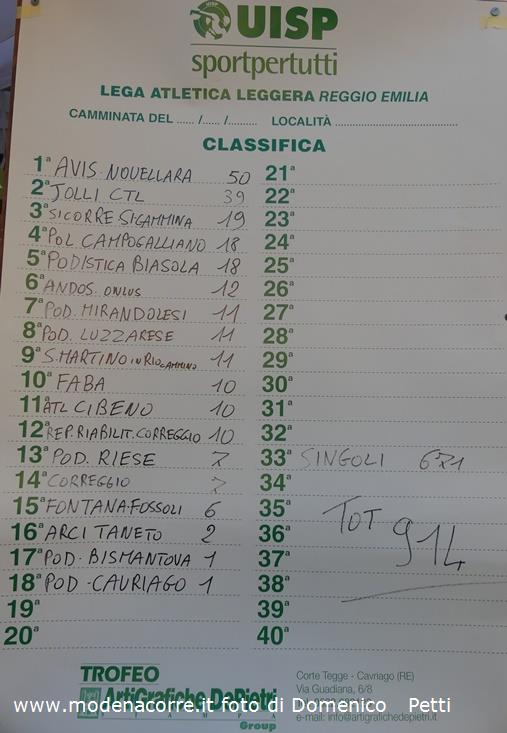 UISP
sportpertutti
LEGA ATLETICA LEGGERA REGGIO EMILIA
CAMMINATA DEL ...... /...... /.......... LOCALITÀ ......................................
CLASSIFICA
1ª AVIS NOVELLARA 50
2ª JOLLI CTL 39
3ª SICORRE SICAMMINA 19
4ª POL CAMPOGALLIANO 18
5ª PODISTICA BIASOLA 18
6ª ANDOS ONLUS 12
7ª POD. MIRANDOLESI 11
8ª POD. LUZZARESE 11
9ª S. MARTINO IN RIO CAMMINO 11
10ª FABA 10
11ª ATL CIBENO 10
12ª REP. RIABILIT. CORREGGIO 10
13ª POD. RIESE 7
14ª CORREGGIO 7
15ª FONTANA FOSSOLI 6
16ª ARCI TANETO 2
17ª POD - BISMANTOVA 1
18ª POD - CAVRIAGO 1
19ª
20ª
21ª
22ª
23ª
24ª
25ª
26ª
27ª
28ª
29ª
30ª
31ª
32ª
33ª SINGOLI 671
34ª
35ª
36ª
37ª
38ª
39ª
40ª
TOT 914
TROFEO
ArtiGrafiche DePietri
STAMPA
Group
Corte Tegge - Cavriago (RE)
Via Guadiana, 6/8
e-mail: info@artigrafichedepietri.it
www.modenacorre.it foto di Domenico Petti